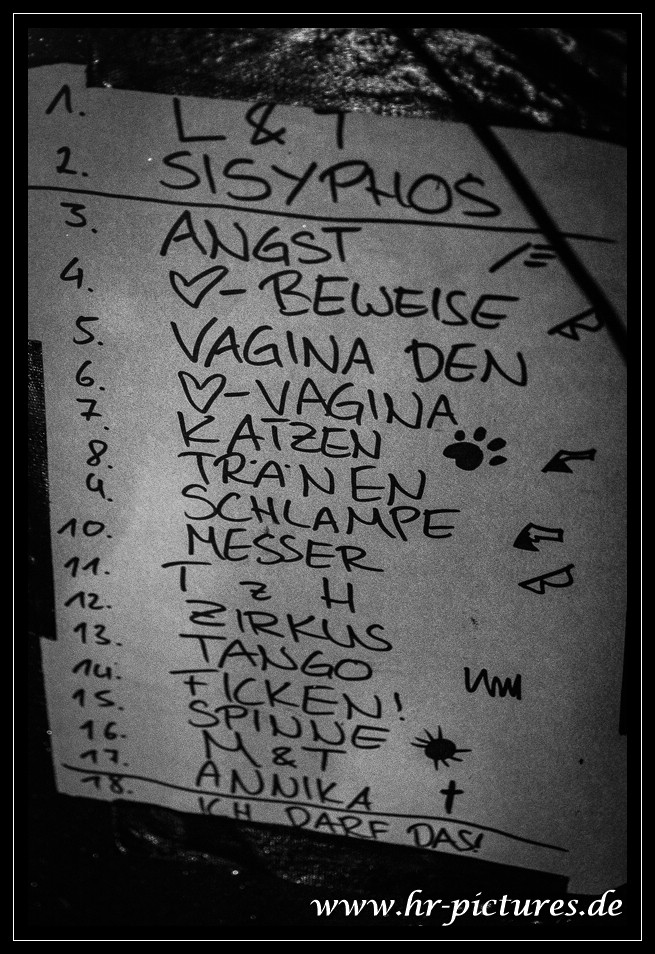 1. L & T
2. SISYPHOS
3. ANGST
4. ♡-BEWEISE
5. VAGINA DEN
6. ♡-VAGINA
7. KATZEN
8. TRÄNEN
9. SCHLAMPE
10. MESSER
11. T z H
12. ZIRKUS
13. TANGO
14. FICKEN!
15. SPINNE
16. M & T
17. ANNIKA
18. ICH DARF DAS!
www.hr-pictures.de